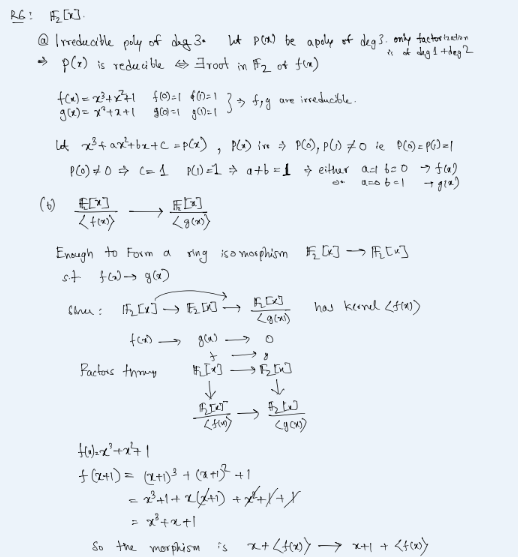 R6: 𝔽₂[x].
ⓐ Irreducible poly of deg 3. Let P(x) be a poly of deg 3. only factorization is of deg 1 + deg 2
⇒ P(x) is reducible ⇔ ∃ root in 𝔽₂ of f(x)
f(x) = x³+x²+1 f(0)=1 f(1)=1 } → f,g are irreducible.
g(x) = x³+x+1 g(0)=1 g(1)=1
Let x³+ax²+bx+c = P(x), P(x) irr ⇒ P(0), P(1) ≠ 0 ie P(0)=P(1)=1
P(0)≠0 ⇒ c=1 P(1)=1 ⇒ a+b=1 ⇒ either a=1 b=0 → f(x)
or a=0 b=1 → g(x)
(b) 𝔽₂[x]/<f(x)> → 𝔽₂[x]/<g(x)>
Enough to Form a ring isomorphism 𝔽₂[x] → 𝔽₂[x]
s.t f(x) → g(x)
Since: 𝔽₂[x] → 𝔽₂[x] → 𝔽₂[x]/<g(x)> has kernel <f(x)>
f(x) → g(x) → 0
f → g
Factors through 𝔽₂[x] → 𝔽₂[x]
↓ ↓
𝔽₂[x]/<f(x)> → 𝔽₂[x]/<g(x)>
f(x)=x³+x²+1
f(x+1) = (x+1)³ + (x+1)² + 1
= x³+1+x(x+1) + x²+1+1
= x³+x+1
So the morphism is x+<f(x)> → x+1 + <f(x)>